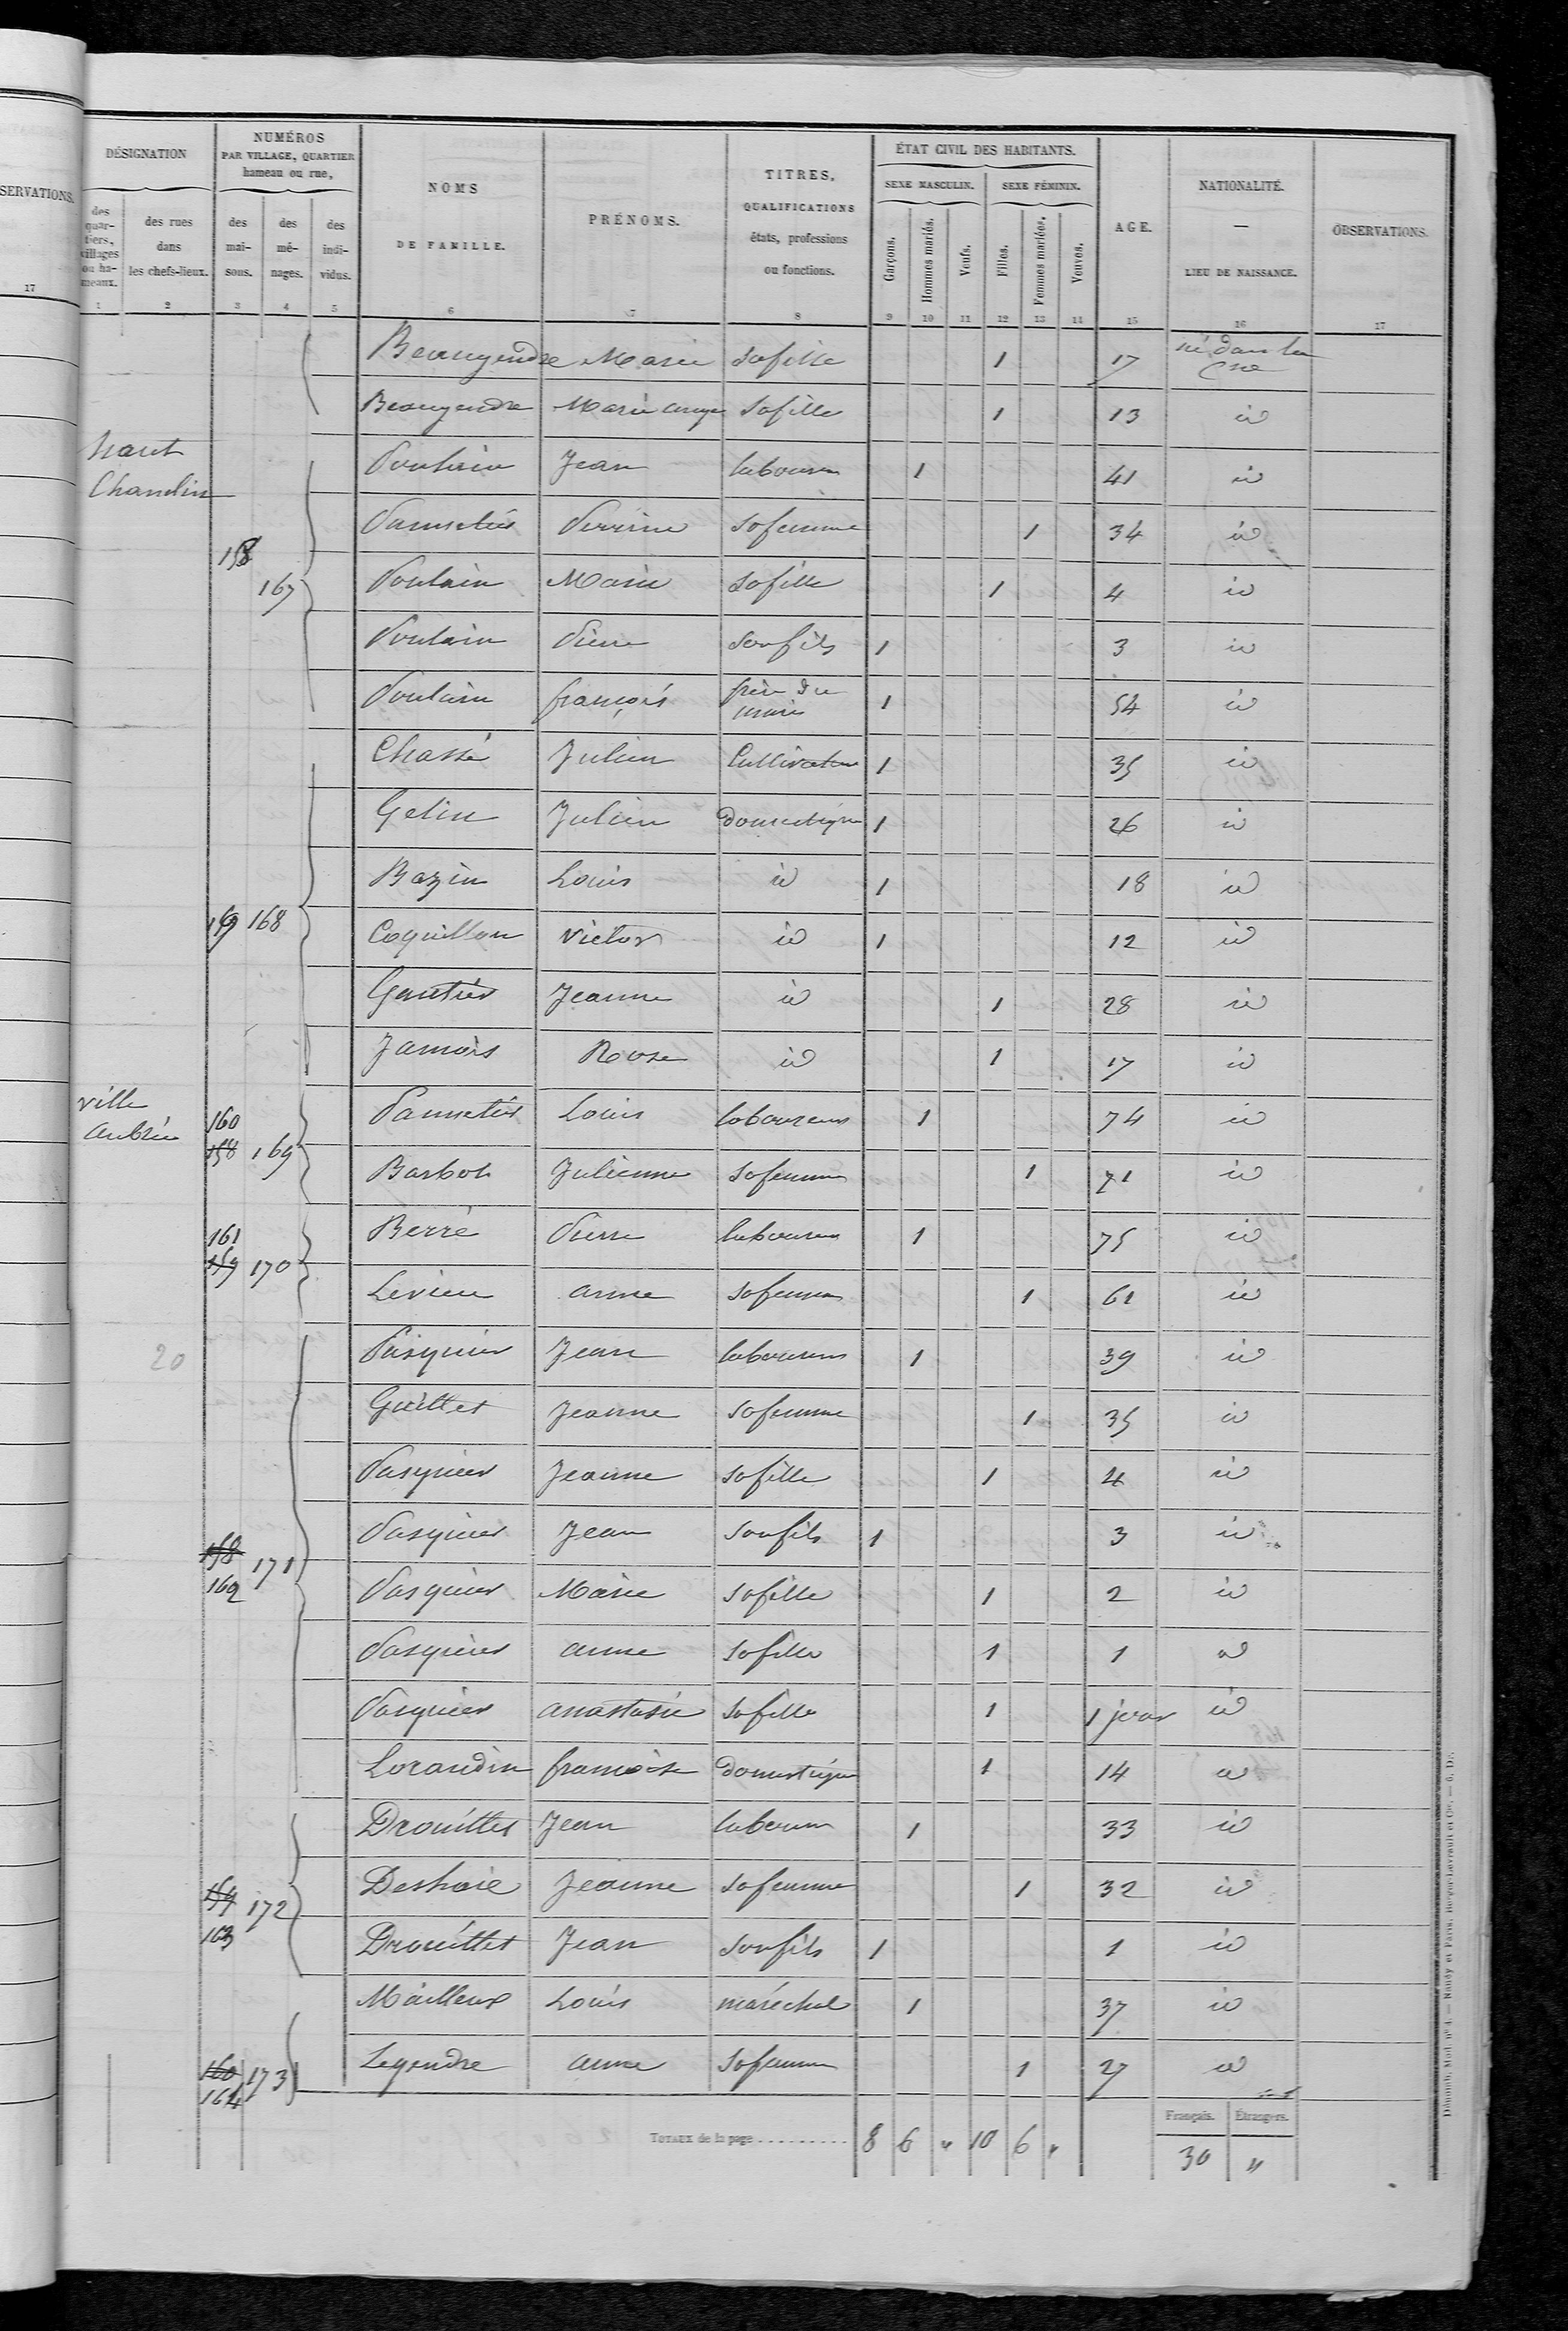 SERVATIONS.
17
DÉSIGNATION
NUMÉROS
PAR VILLAGE, QUARTIER
hameau ou rue,
des quartiers, villages ou hameaux.
des rues dans les chefs-lieux.
des maisons.
des ménages.
des individus.
NOMS
DE FAMILLE.
PRÉNOMS.
TITRES,
QUALIFICATIONS
états, professions
ou fonctions.
ÉTAT CIVIL DES HABITANTS.
SEXE MASCULIN.
SEXE FÉMININ.
Garçons.
Hommes mariés.
Veufs.
Filles.
Femmes mariées.
Veuves.
AGE.
NATIONALITÉ.
—
LIEU DE NAISSANCE.
OBSERVATIONS.
1 2 3 4 5 6 7 8 9 10 11 12 13 14 15 16 17
Beaugendre Marie sa fille 1 17 né dans la Cne
Beaugendre Marie ange sa fille 1 13 id
haut
Chandin
Poulain Jean laboureur 1 41 id
Pannetier Perrine sa femme 1 34 id
158
167 Poulain Marie sa fille 1 4 id
Poulain Pierre son fils 1 3 id
Poulain françois frère du mari 1 54 id
Chassé Julien Cultivateur 1 35 id
Gelin Julien domestique 1 26 id
Bazin Louis id 1 18 id
159 168 Coquillon victor id 1 12 id
Gautier Jeanne id 1 28 id
Jamois Rose id 1 17 id
ville
aubrée
160
158 169
Pannetier Louis laboureur 1 74 id
Barbot Julienne sa femme 1 71 id
161
159 170
Berré Pierre laboureur 1 75 id
Levieu anne sa femme 1 61 id
20
Pasquier Jean laboureur 1 39 id
Guillet Jeanne sa femme 1 35 id
Pasquier Jeanne sa fille 1 4 id
Pasquier Jean son fils 1 3 id
158 171
162
Pasquier Marie sa fille 1 2 id
Pasquier anne sa fille 1 1 id
Pasquier anastasie sa fille 1 1 jour id
Lorandin francoise domestique 1 14 id
Drouillet Jean laboureur 1 33 id
159 172
163
Deshaie Jeanne sa femme 1 32 id
Drouillet Jean son fils 1 1 id
Mailleux Louis maréchal 1 37 id
160 173
164
Legendre anne sa femme 1 27 id
Français. Étrangers.
TOTAUX de la page . . . . . . . . . . 8 6 " 10 6 " 30 "